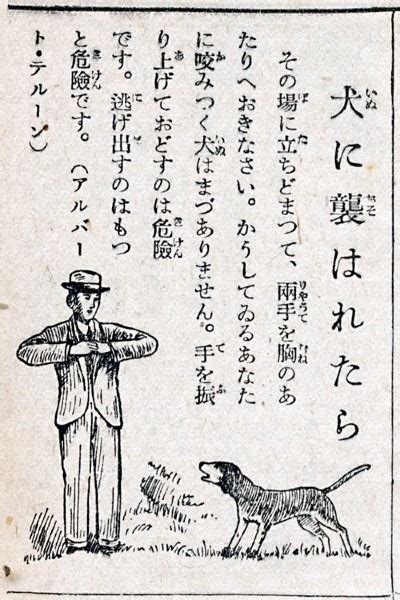 犬に襲はれたら
その場に立ちどまつて、兩手を胸のあ
たりへおきなさい。かうしてゐるあなた
に咬みつく犬はまづありません。手を振
り上げておどすのは危險
です。逃げ出すのはもつ
と危險です。（アルバー
ト・テルーン）